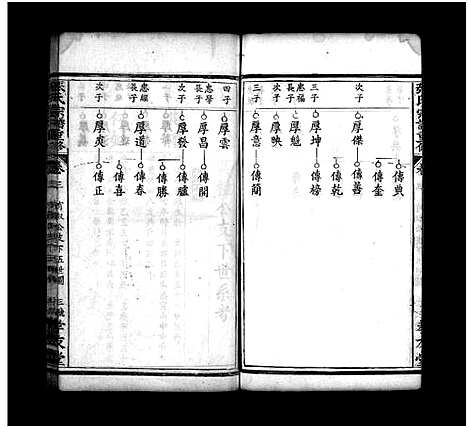 張氏宗譜重修
傳典
傳奎
次子
厚傑
傳善
傳乾
三子
厚坤
傳榜
忠福
長子
厚魁
次子
厚映
三子
厚意
傳簡
四子
厚雲
忠學
長子
厚昌
傳開
次子
厚發
傳臚
傳勝
忠順
長子
厚道
傳春
傳喜
次子
厚炎
傳正
張氏宗譜重修
卷三
孝友堂